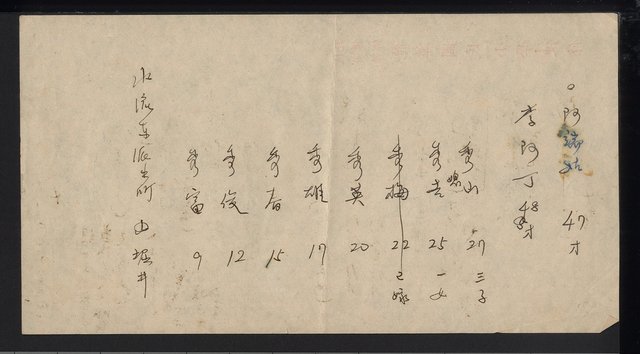 阿 47才
李阿丁 48才
秀山 27 三子
秀吉 25 一女
秀梅 22 已嫁
秀英 20
秀雄 17
秀春 15
秀俊 12
秀富 9
水流東派出所 由堀井